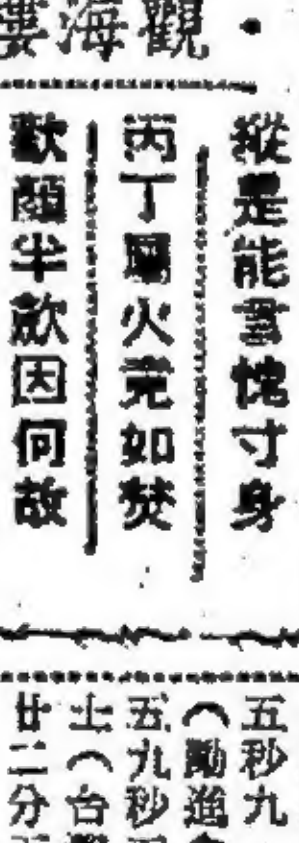 ・觀海樓
縱是能言愧寸身
丙丁屬火竟如焚
歡顏半歛因何故
五秒九
(勵進
五九秒
士(台
廿二分